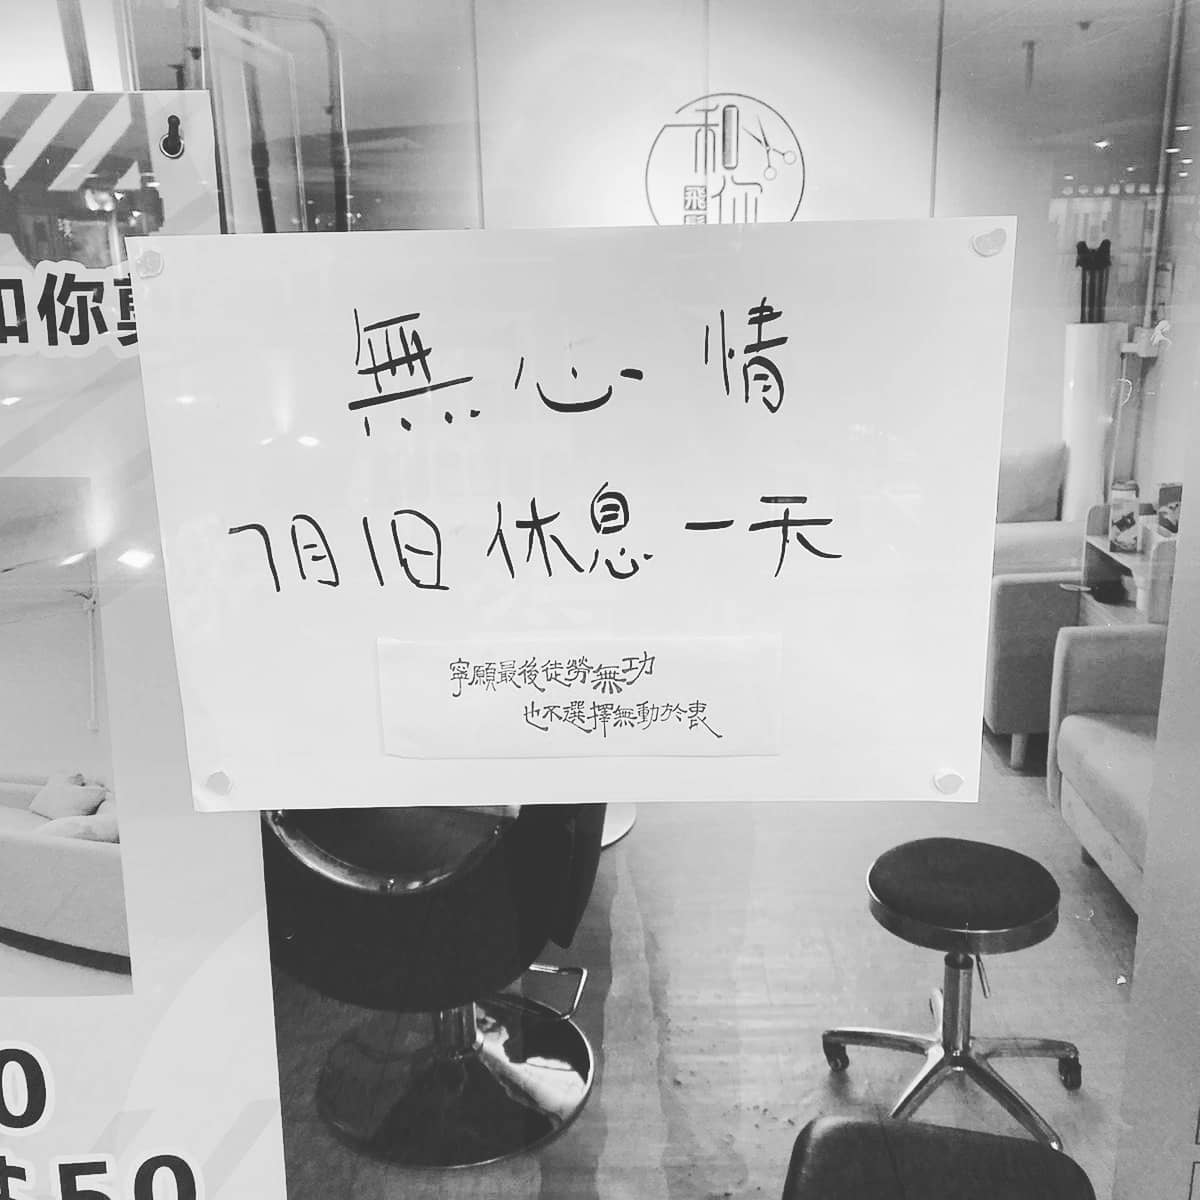 和你
飛髮
和你剪
無心情
7月1日休息一天
寧願最後徒勞無功
也不選擇無動於衷
0
$50